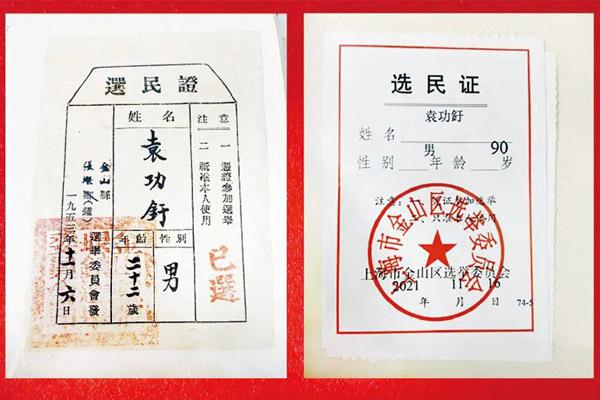 選民證
注意
一 憑證參加選舉
二 祇准本人使用
姓名
袁功釪
性別
男
年齡
二十二歲
已選
金山縣
張堰區(鎮)
選舉委員會發
一九五三年十一月六日
选民证
袁功釪
姓名
男 90
性别 年龄 岁
注意:
证参加选举
上海市金山区选举委员会
2021 11 16
年 月 日
74-5
上海市金山区选举委员会